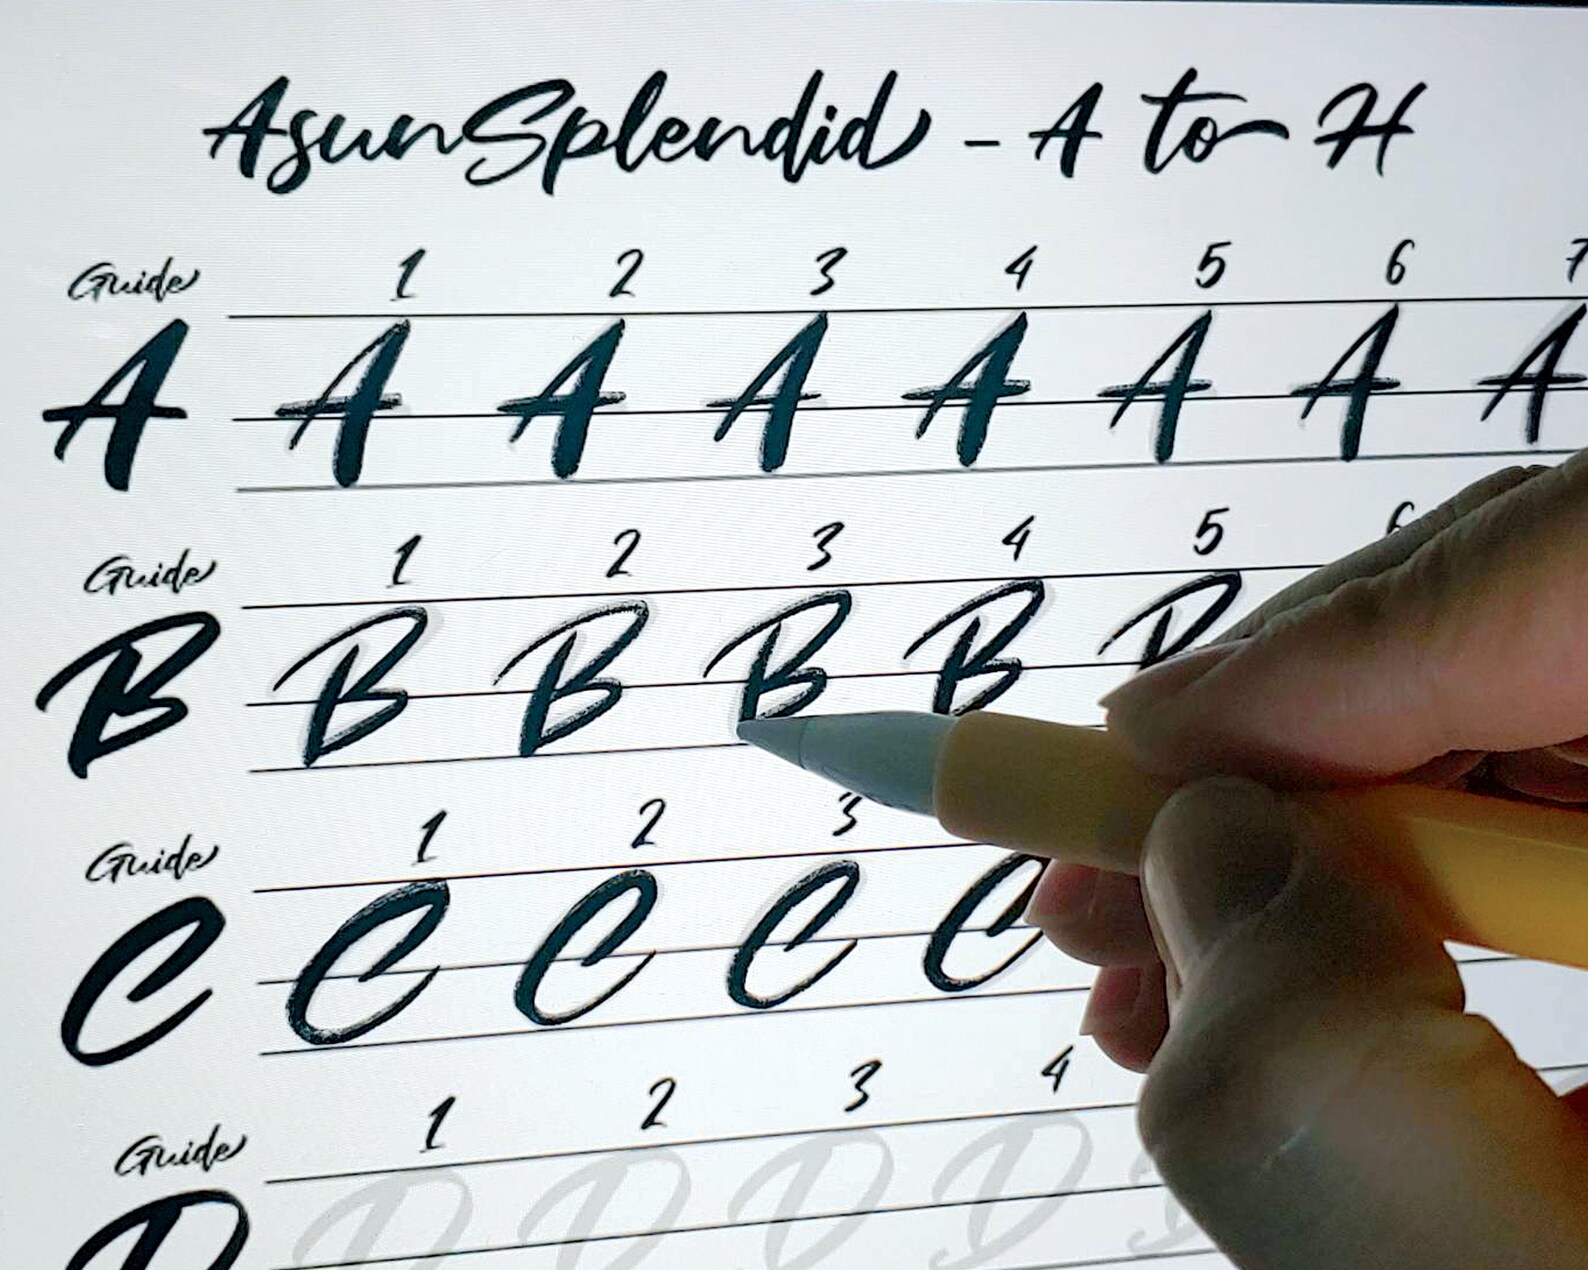 AsunSplendid - A to H
Guide 1 2 3 4 5 6 7
A A A A A A A A
Guide 1 2 3 4 5 6
B B B B B B
Guide 1 2 3
C C C C C
Guide 1 2 3 4
D D D D D